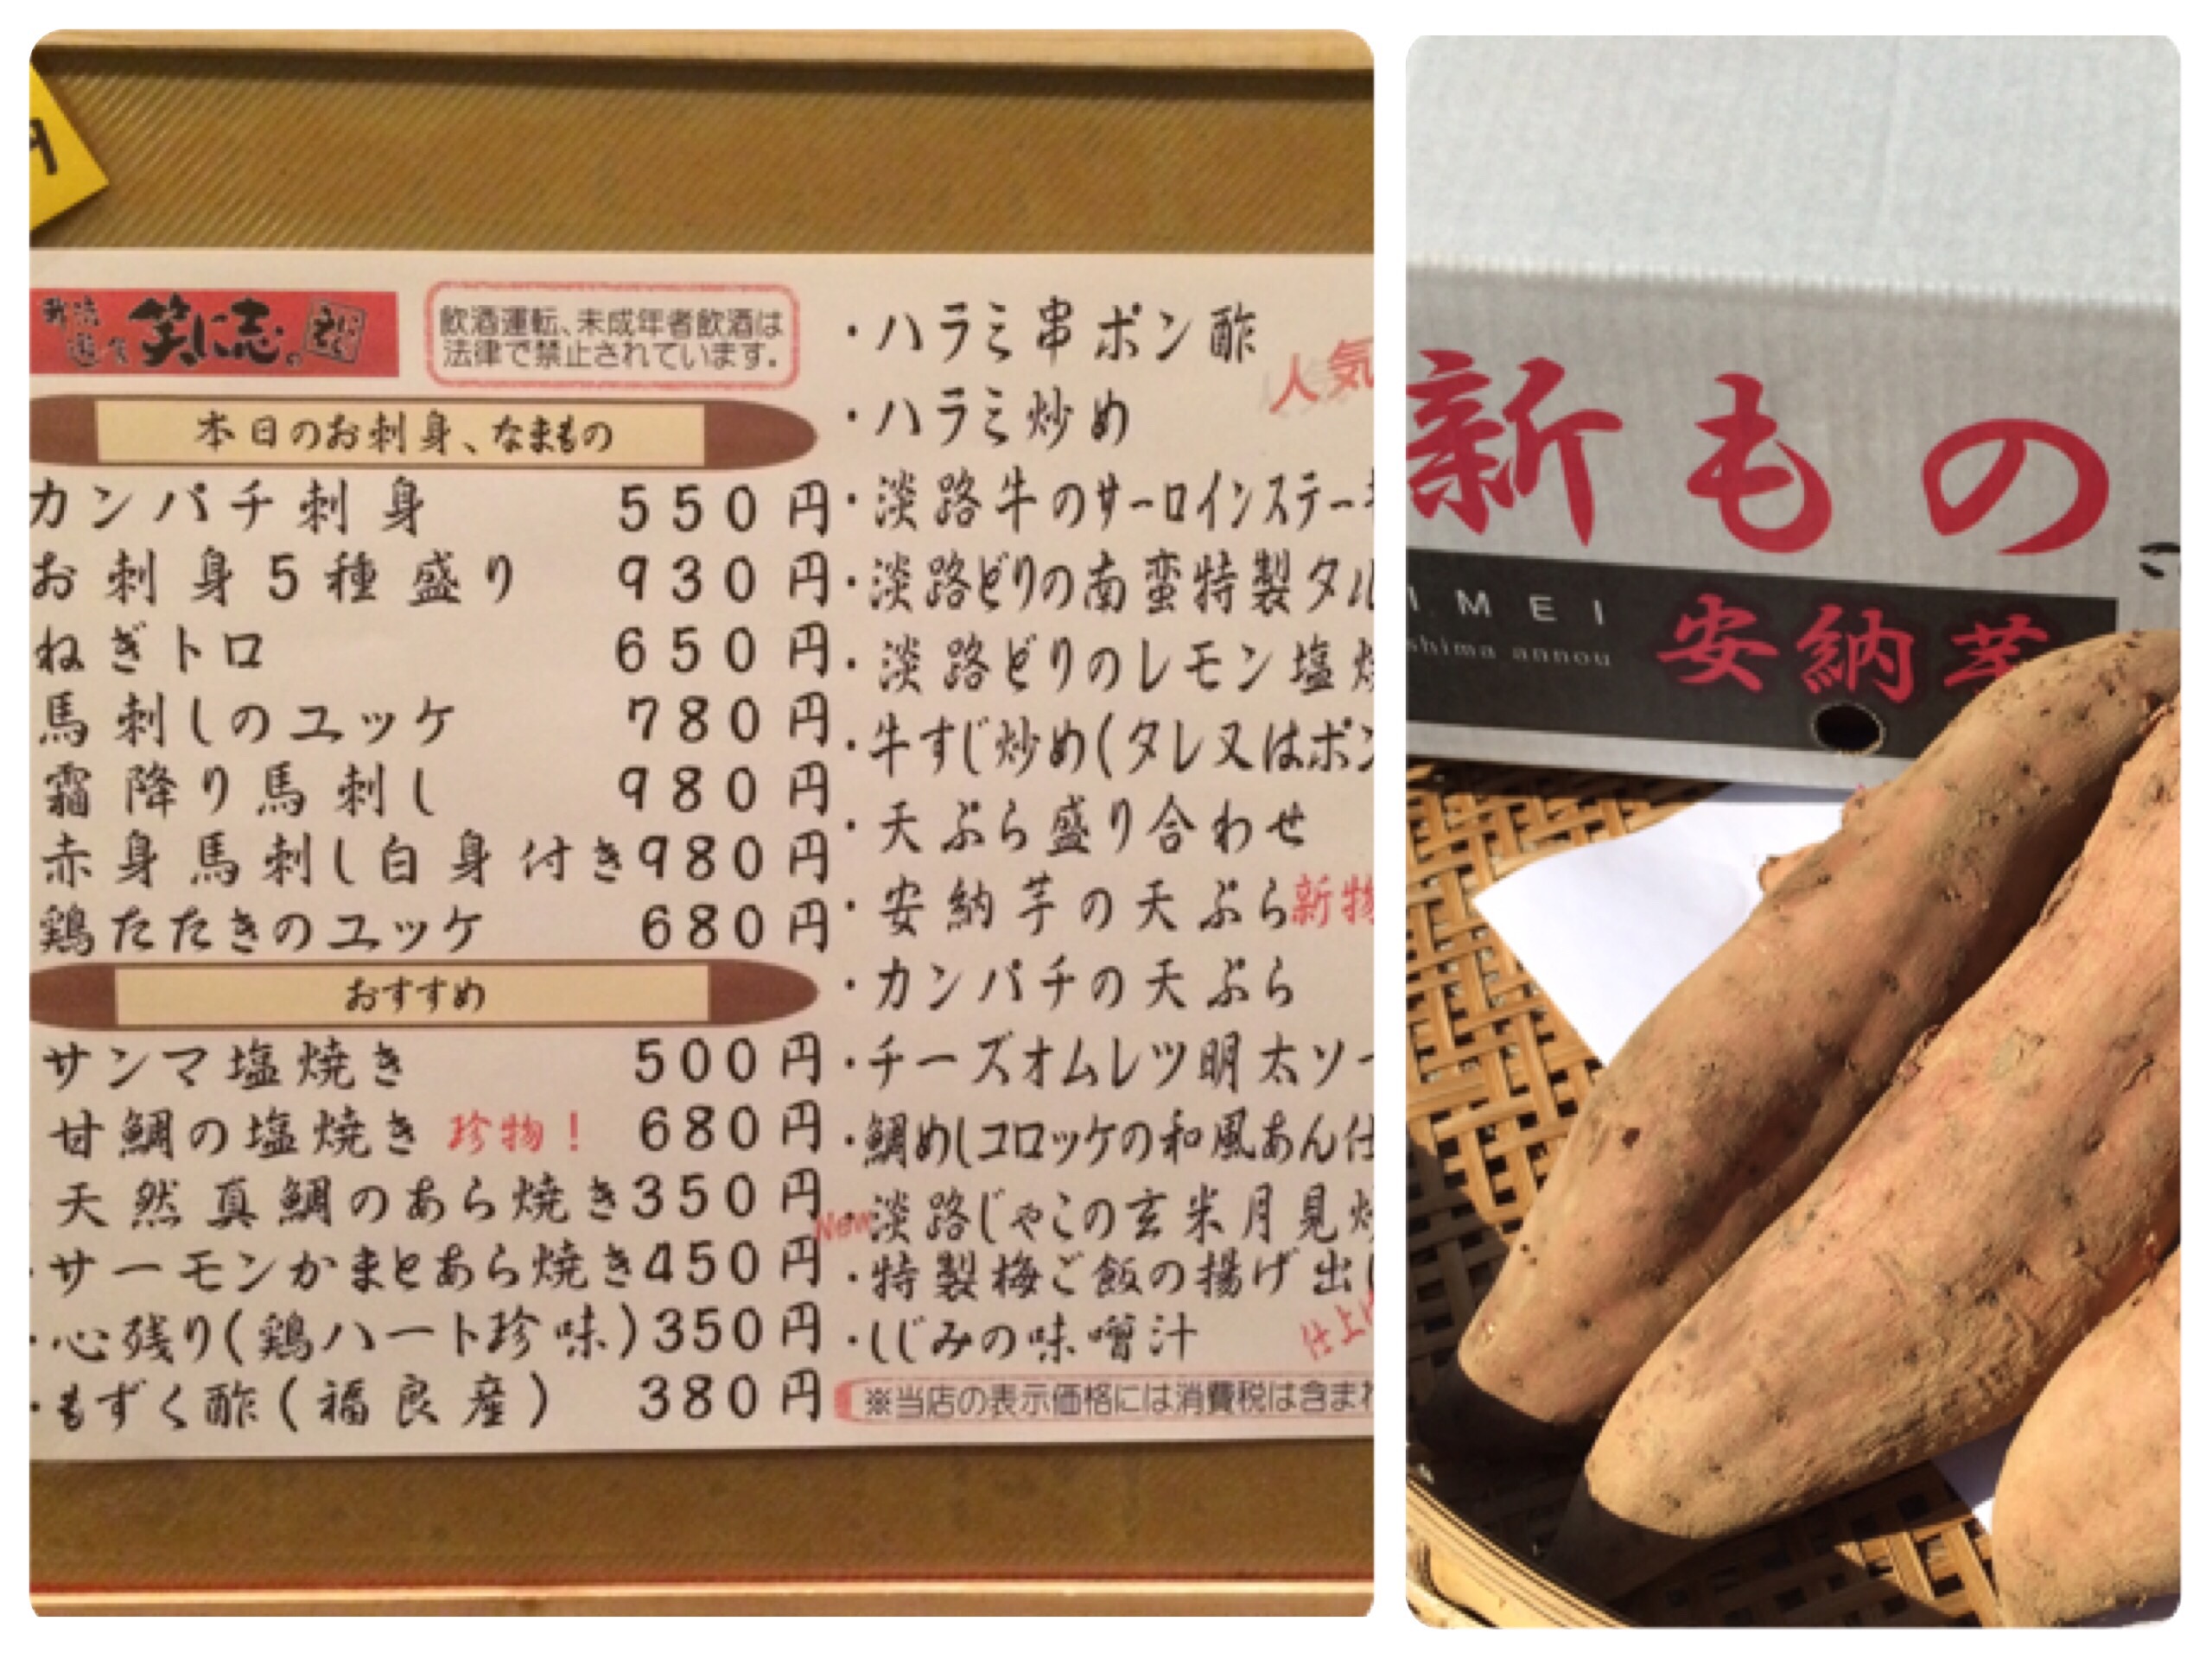 笑に志
飲酒運転、未成年者飲酒は
法律で禁止されています。
本日のお刺身、なまもの
カンパチ刺身 550円
お刺身5種盛り 930円
ねぎトロ 650円
馬刺しのユッケ 780円
霜降り馬刺し 980円
赤身馬刺し白身付き980円
鶏たたきのユッケ 680円
おすすめ
サンマ塩焼き 500円
甘鯛の塩焼き 珍物! 680円
天然真鯛のあら焼き350円
・サーモンかまとあら焼き450円
・心残り(鶏ハート珍味)350円
・もずく酢(福良産) 380円
・ハラミ串ポン酢
人気
・ハラミ炒め
・淡路牛のサーロインステーキ
・淡路どりの南蛮特製タル
・淡路どりのレモン塩焼
・牛すじ炒め(タレ又はポン
・天ぷら盛り合わせ
・安納芋の天ぷら新物
・カンパチの天ぷら
・チーズオムレツ明太ソー
・鯛めしコロッケの和風あん仕
New・淡路じゃこの玄米月見炒
・特製梅ご飯の揚げ出し
・しじみの味噌汁
仕上げ
※当店の表示価格には消費税は含まれ
新もの
MEI
shima annou
安納芋